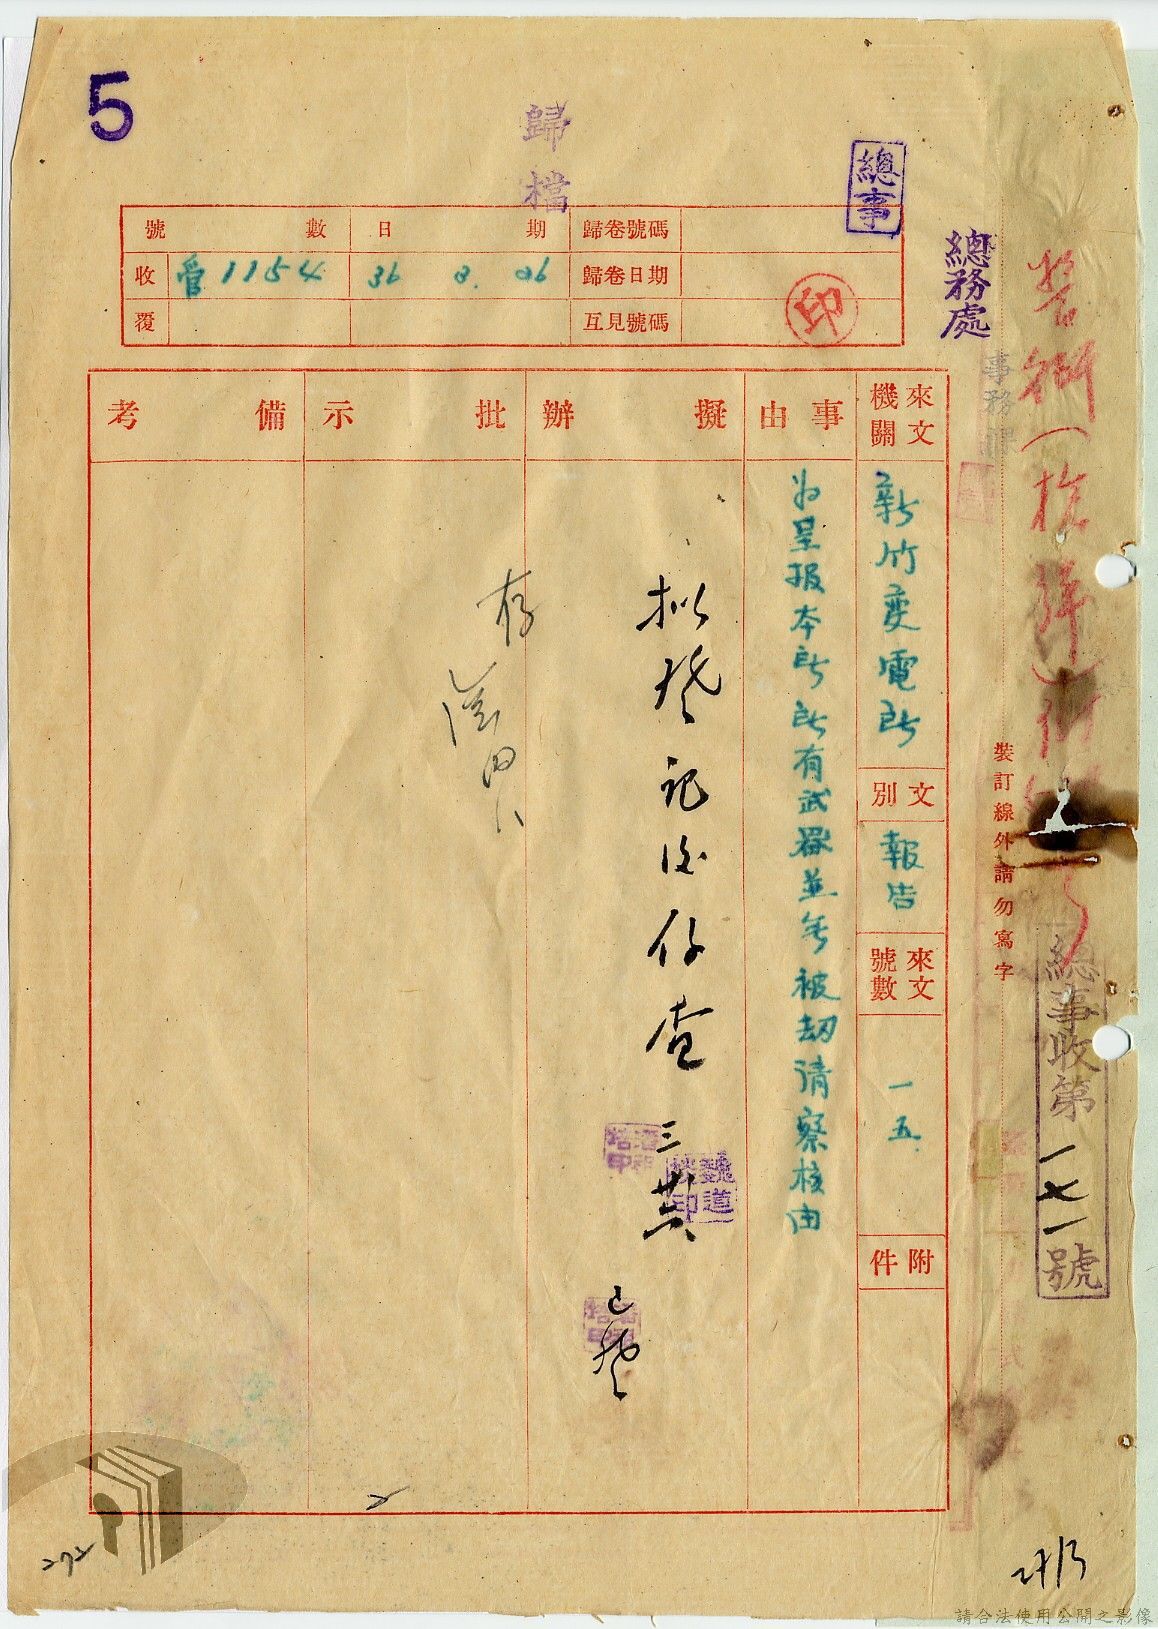 5
歸檔
總事
總務處
事務課
號數
日期
歸卷號碼
收
管1154
36 3. 26
歸卷日期
印
覆
互見號碼
來文機關
新竹变電所
文別
報告
來文號數
一五
附件
事由
为呈报本所所有武器並无被劫请察核由
擬辦
拟登记后存查
三 廿六
魏道
已登
批示
存
備考
裝訂線外請勿寫字
總事收第一七一號
請合法使用公開之影像